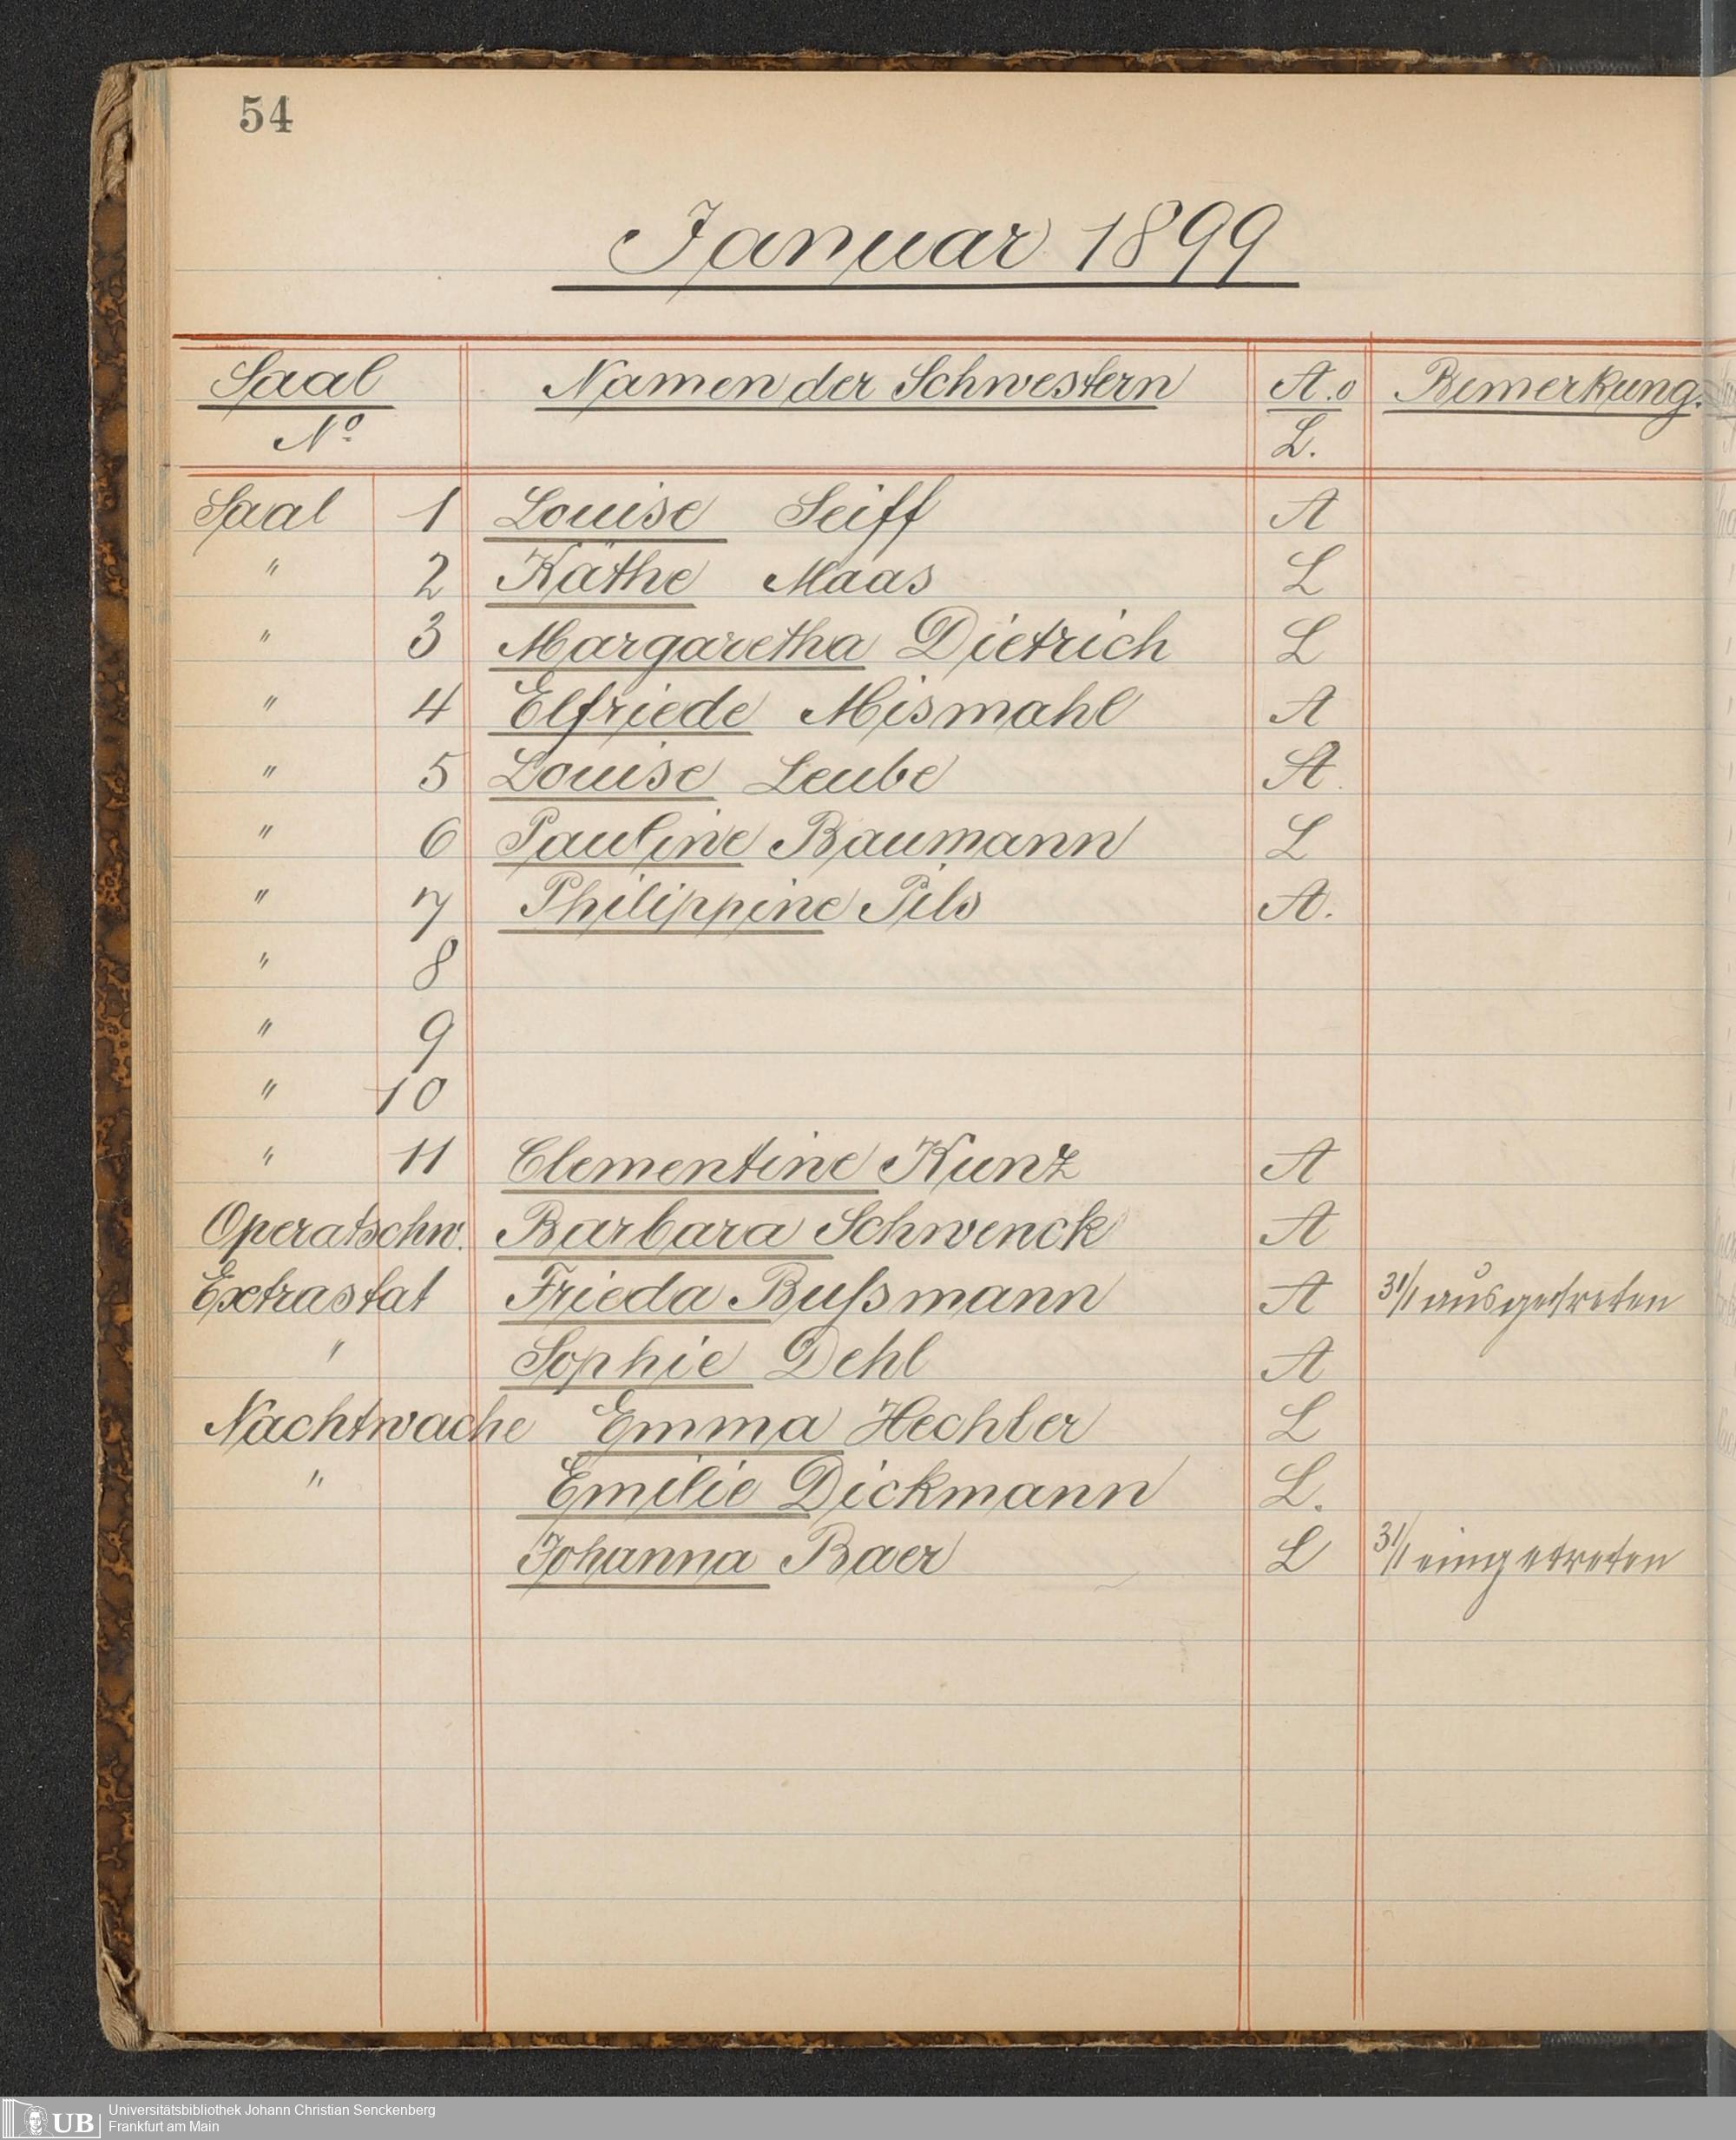 54
Januar 1899
Saal Namen der Schwestern A. o Bemerkung.
No L.
Saal 1 Louise Seiff A
" 2 Käthe Maas L
" 3 Margaretha Dietrich L
" 4 Elfriede Mismahl A
" 5 Louise Leube A
" 6 Pauline Baumann L
" 7 Philippine Pils A.
" 8
" 9
" 10
" 11 Clementine Kunz A
Operatschw. Barbara Schwenck A
Extrastat Frieda Bußmann A 31/1 ausgetreten
" Sophie Dehl A
Nachtwache Emma Hechler L
" Emilie Dickmann L.
Johanna Baer L 31/1 eingetreten
UB Universitätsbibliothek Johann Christian Senckenberg
Frankfurt am Main